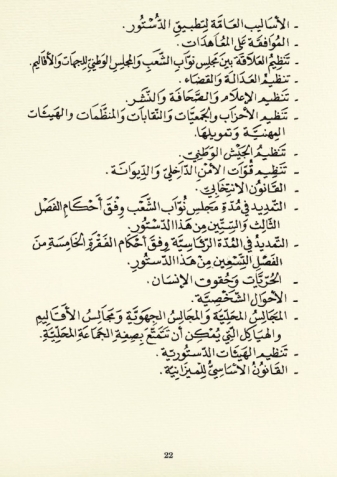 - الأساليب العامّة لتطبيق الدّستور.
- الموافقة على المعاهدات.
- تنظيم العلاقة بين مجلس نوّاب الشّعب والمجلس الوطنيّ للجهات والأقاليم.
- تنظيم العدالة والقضاء.
- تنظيم الإعلام والصّحافة والنّشر.
- تنظيم الأحزاب والجمعيّات والنّقابات والمنظّمات والهيئات
المهنيّة وتمويلها.
- تنظيم الجيش الوطنيّ.
- تنظيم قوّات الأمن الدّاخليّ والدّيوانة.
- القانون الانتخابيّ.
- التّمديد في مدّة مجلس نوّاب الشّعب وفق أحكام الفصل
الثّالث والسّتّين من هذا الدّستور.
- التّمديد في المدّة الرّئاسيّة وفق أحكام الفقرة الخامسة من
الفصل التّسعين من هذا الدّستور.
- الحرّيّات وحقوق الإنسان.
- الأحوال الشّخصيّة.
- المجالس المحلّيّة والمجالس الجهويّة ومجالس الأقاليم
والهياكل الّتي يمكن أن تتمتّع بصفة الجماعة المحلّيّة.
- تنظيم الهيئات الدّستوريّة.
- القانون الأساسيّ للميزانيّة.
22